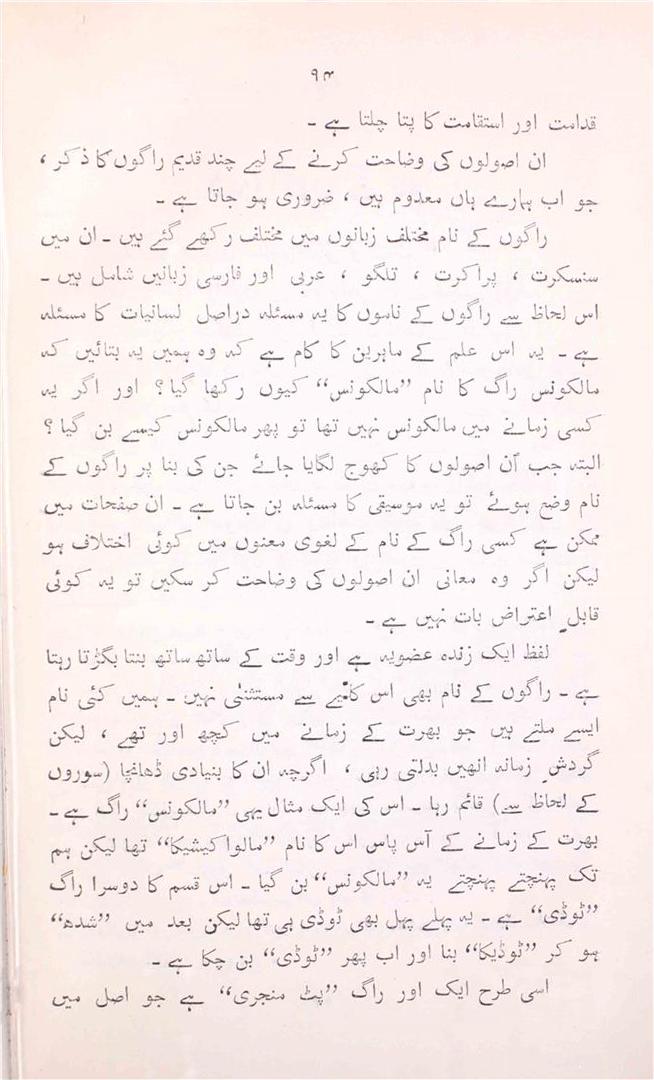 ۹۳
قدامت اور استقامت کا پتا چلتا ہے ۔
ان اصولوں کی وضاحت کرنے کے لیے چند قدیم راگوں کا ذکر ،
جو اب ہمارے ہاں معدوم ہیں ، ضروری ہو جاتا ہے ۔
راگوں کے نام مختلف زبانوں میں مختلف رکھے گئے ہیں ۔ ان میں
سنسکرت ، پراکرت ، تلگو ، عربی اور فارسی زبانیں شامل ہیں ۔
اس لحاظ سے راگوں کے ناموں کا یہ مسئلہ دراصل لسانیات کا مسئلہ
ہے ۔ یہ اس علم کے ماہرین کا کام ہے کہ وہ ہمیں یہ بتائیں کہ
مالکونس راگ کا نام ”مالکونس“ کیوں رکھا گیا؟ اور اگر یہ
کسی زمانے میں مالکونس نہیں تھا تو پھر مالکونس کیسے بن گیا؟
البتہ جب اُن اصولوں کا کھوج لگایا جائے جن کی بنا پر راگوں کے
نام وضع ہوئے تو یہ موسیقی کا مسئلہ بن جاتا ہے ۔ ان صفحات میں
ممکن ہے کسی راگ کے نام کے لغوی معنوں میں کوئی اختلاف ہو
لیکن اگر وہ معانی ان اصولوں کی وضاحت کر سکیں تو یہ کوئی
قابلِ اعتراض بات نہیں ہے ۔
لفظ ایک زندہ عضویہ ہے اور وقت کے ساتھ ساتھ بنتا بگڑتا رہتا
ہے ۔ راگوں کے نام بھی اس کلّیے سے مستثنیٰ نہیں ۔ ہمیں کئی نام
ایسے ملتے ہیں جو بھرت کے زمانے میں کچھ اور تھے ، لیکن
گردشِ زمانہ انھیں بدلتی رہی ، اگرچہ ان کا بنیادی ڈھانچا (سوروں
کے لحاظ سے) قائم رہا ۔ اس کی ایک مثال یہی ”مالکونس“ راگ ہے ۔
بھرت کے زمانے کے آس پاس اس کا نام ”مالوا کیشیکا“ تھا لیکن ہم
تک پہنچتے پہنچتے یہ ”مالکونس“ بن گیا ۔ اس قسم کا دوسرا راگ
”ٹوڈی“ ہے ۔ یہ پہلے پہل بھی ٹوڈی ہی تھا لیکن بعد میں ”شدھ“
ہو کر ”ٹوڈیکا“ بنا اور اب پھر ”ٹوڈی“ بن چکا ہے ۔
اسی طرح ایک اور راگ ”پٹ منجری“ ہے جو اصل میں